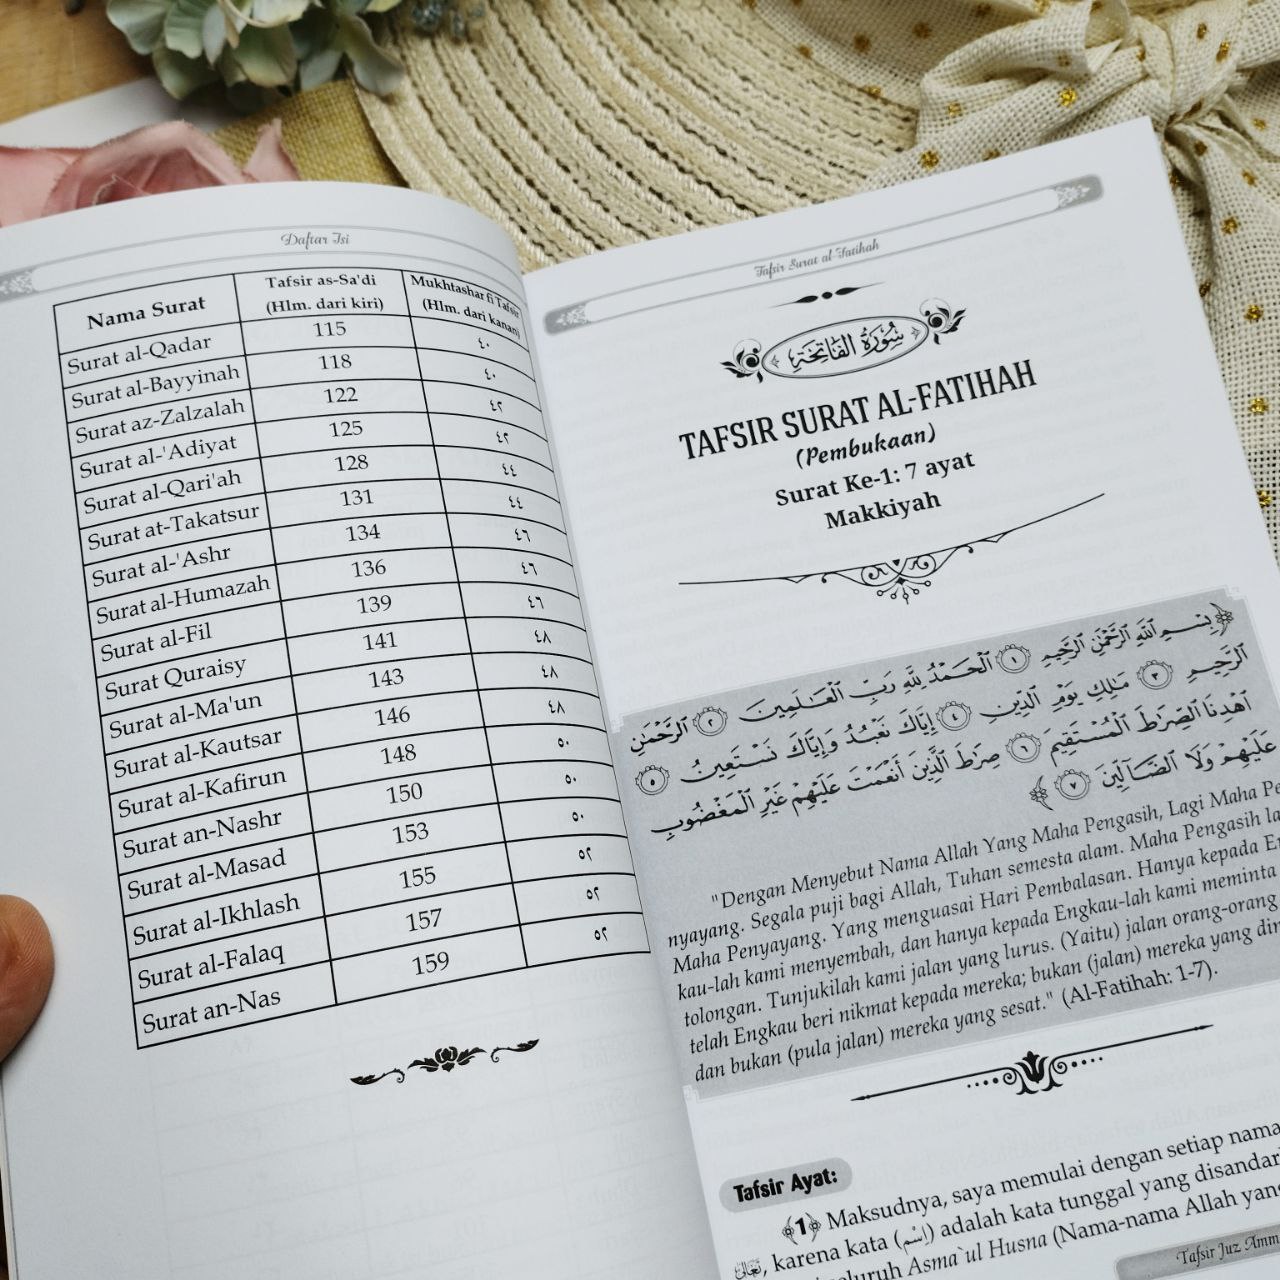 Daftar Isi
Nama Surat | Tafsir as-Sa'di (Hlm. dari kiri) | Mukhtashar fi Tafsir (Hlm. dari kanan)
Surat al-Qadar | 115 | ٤٠
Surat al-Bayyinah | 118 | ٤٠
Surat az-Zalzalah | 122 | ٤٢
Surat al-'Adiyat | 125 | ٤٢
Surat al-Qari'ah | 128 | ٤٤
Surat at-Takatsur | 131 | ٤٤
Surat al-'Ashr | 134 | ٤٦
Surat al-Humazah | 136 | ٤٦
Surat al-Fil | 139 | ٤٦
Surat Quraisy | 141 | ٤٨
Surat al-Ma'un | 143 | ٤٨
Surat al-Kautsar | 146 | ٤٨
Surat al-Kafirun | 148 | ٥٠
Surat an-Nashr | 150 | ٥٠
Surat al-Masad | 153 | ٥٠
Surat al-Ikhlash | 155 | ٥٢
Surat al-Falaq | 157 | ٥٢
Surat an-Nas | 159 | ٥٢
Tafsir Surat al-Fatihah
سُورَةُ الفَاتِحَةِ
TAFSIR SURAT AL-FATIHAH
(Pembukaan)
Surat Ke-1: 7 ayat
Makkiyah
﴿بِسْمِ ٱللَّهِ ٱلرَّحْمَٰنِ ٱلرَّحِيمِ ١ ٱلْحَمْدُ لِلَّهِ رَبِّ ٱلْعَٰلَمِينَ ٢ ٱلرَّحْمَٰنِ
ٱلرَّحِيمِ ٣ مَٰلِكِ يَوْمِ ٱلدِّينِ ٤ إِيَّاكَ نَعْبُدُ وَإِيَّاكَ نَسْتَعِينُ ٥
ٱهْدِنَا ٱلصِّرَٰطَ ٱلْمُسْتَقِيمَ ٦ صِرَٰطَ ٱلَّذِينَ أَنْعَمْتَ عَلَيْهِمْ غَيْرِ ٱلْمَغْضُوبِ
عَلَيْهِمْ وَلَا ٱلضَّآلِّينَ ٧﴾
"Dengan Menyebut Nama Allah Yang Maha Pengasih, Lagi Maha Pe
nyayang. Segala puji bagi Allah, Tuhan semesta alam. Maha Pengasih la
Maha Penyayang. Yang menguasai Hari Pembalasan. Hanya kepada En
kau-lah kami menyembah, dan hanya kepada Engkau-lah kami meminta
tolongan. Tunjukilah kami jalan yang lurus. (Yaitu) jalan orang-orang
telah Engkau beri nikmat kepada mereka; bukan (jalan) mereka yang dim
dan bukan (pula jalan) mereka yang sesat." (Al-Fatihah: 1-7).
Tafsir Ayat:
﴾1﴿ Maksudnya, saya memulai dengan setiap nama
تَعَالَى, karena kata (اِسْم) adalah kata tunggal yang disandar
seluruh Asma`ul Husna (Nama-nama Allah yang
Tafsir Juz Amm